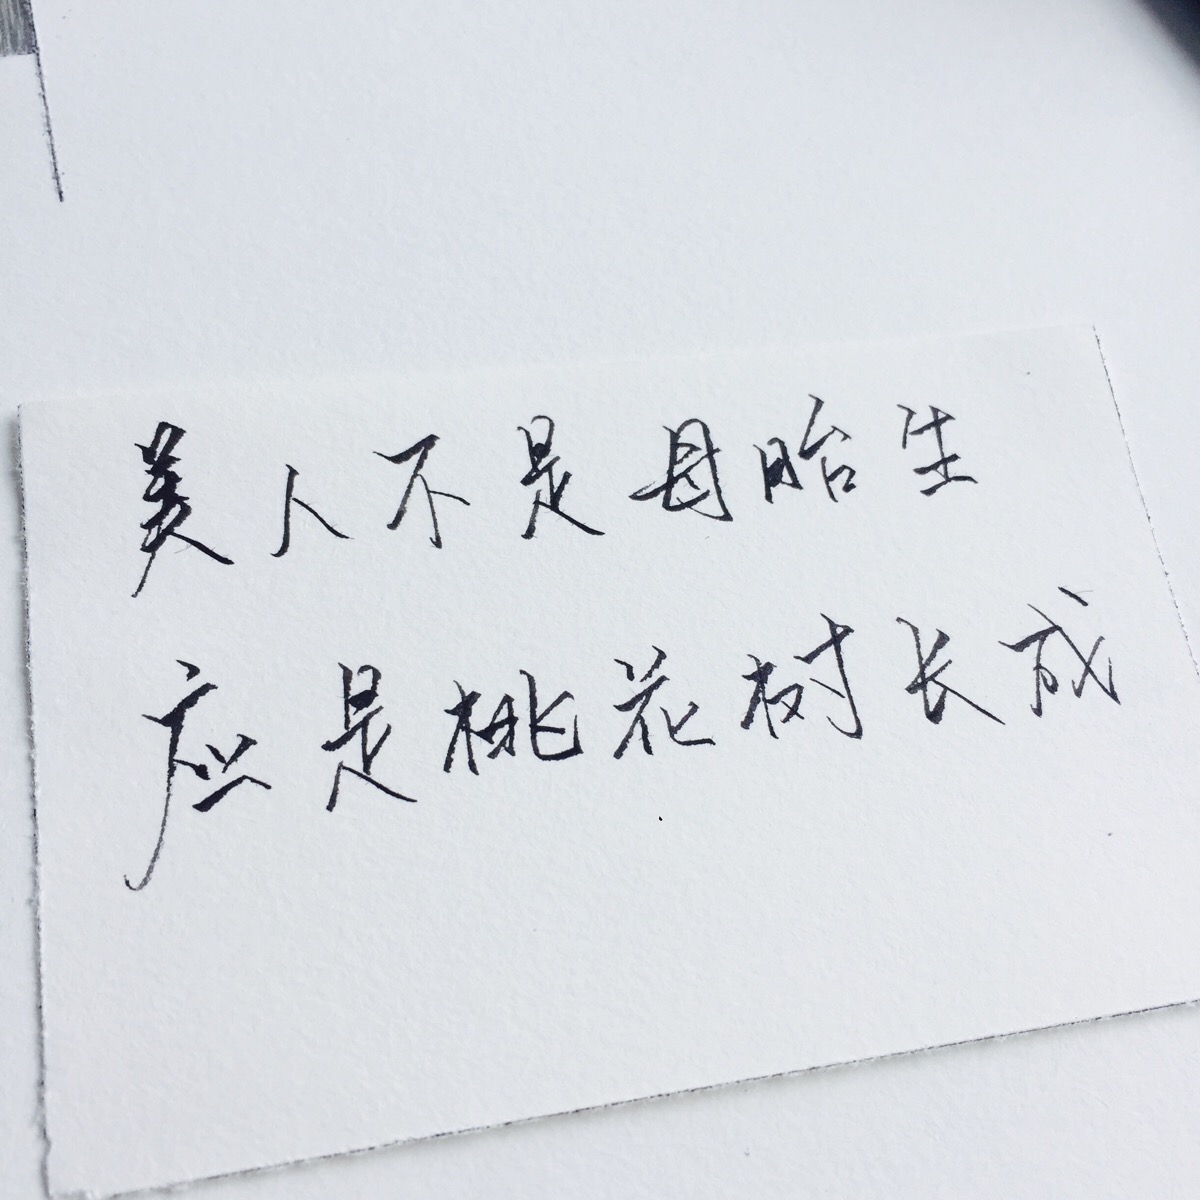 美人不是母胎生
应是桃花树长成